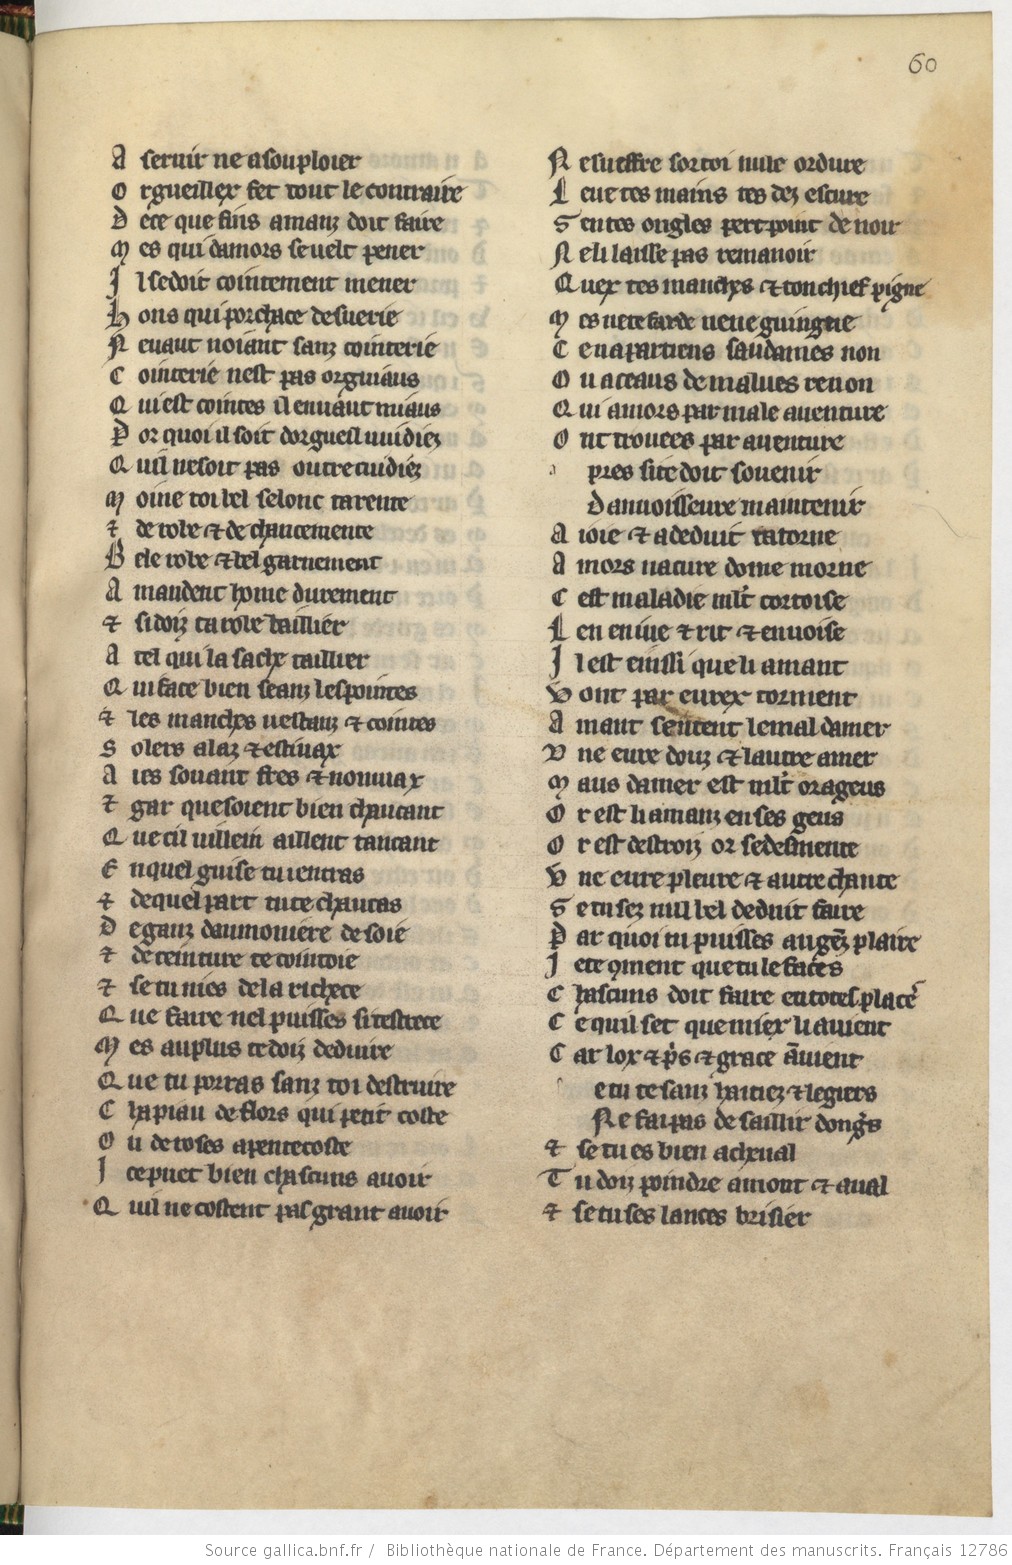 60
A seruir ne a souploier
O rgueillex fet tout le contraire
D e ce que fins amanz doit faire
M es qui damors se uelt pener
I l se doit cointement mener
H ons qui porchace desuerie
N e uaut noiant sanz cointerie
C ointerie nest pas orguiaus
Q ui est cointes il en uaut miaus
P or quoi il soit dorgueil uuidiez
Q uil ne soit pas outrecuidiez
M oine toi bel selonc ta rente
⁊ de robe ⁊ de chaucemente
B ele robe ⁊ bel garnement
A mandent home durement
⁊ si doiz ta robe baillier
A tel qui la sache taillier
Q ui face bien seanz les pointes
⁊ les manches uestanz ⁊ cointes
S olers a laz ⁊ estiuax
A ies souant fres ⁊ nouuiax
⁊ gar que soient bien chaucant
Q ue cil uillein aillent tancant
E n quel guise tu i entras
⁊ de quel part tu te chaucas
D e ganz daumoniere de soie
⁊ de ceinture te cointoie
⁊ se tu nies de la richece
Q ue faire nel puisses si testrece
M es au plus te doiz deduire
Q ue tu porras sanz toi destruire
C hapiau de flors qui petit coste
O u de roses a pentecoste
I ce puet bien chascuns auoir
Q uil ne costent pas grant auoir
N e sueffre sor toi nule ordure
L eue tes mains tes dez escure
S en tes ongles pert point de noir
N e li laisse pas remanoir
Q uex tes manches ⁊ ton chief pigne
M es ne te farde ne ne guingne
C e n apartiens sau dames non
O u a ceaus de malues renon
Q ui amors par male auenture
O nt trouees par auenture
pres site doit souenir
D anuoisseure maintenir
A ioie ⁊ a deduit tatorne
A mors na cure dome morne
C est maladie mlt cortoise
L en en iue ⁊ rit ⁊ enuoise
I l est einssi que li amant
V ont par eures torment
A mant sentent le mal damer
V ne eure douz ⁊ lautre amer
M aus damer est mlt orageus
O r est li amanz en ses geus
O r est destroiz or se desmente
V ne eure pleure ⁊ autre chante
S e tu sez nul bel deduit faire
P ar quoi tu puisses augenz plaire
I e te ꝯment que tu le faces
C hascuns doit faire en totes places
C e quil set que miex li auient
C ar lox ⁊ pris ⁊ grace an uient
e tu te sanz haitiez ⁊ legiers
N e fai pas de saillir dongiers
⁊ se tu es bien a cheual
T u doiz poindre amont ⁊ aual
⁊ se tu ses lances brisier
Source gallica.bnf.fr / Bibliothèque nationale de France. Département des manuscrits. Français 12786